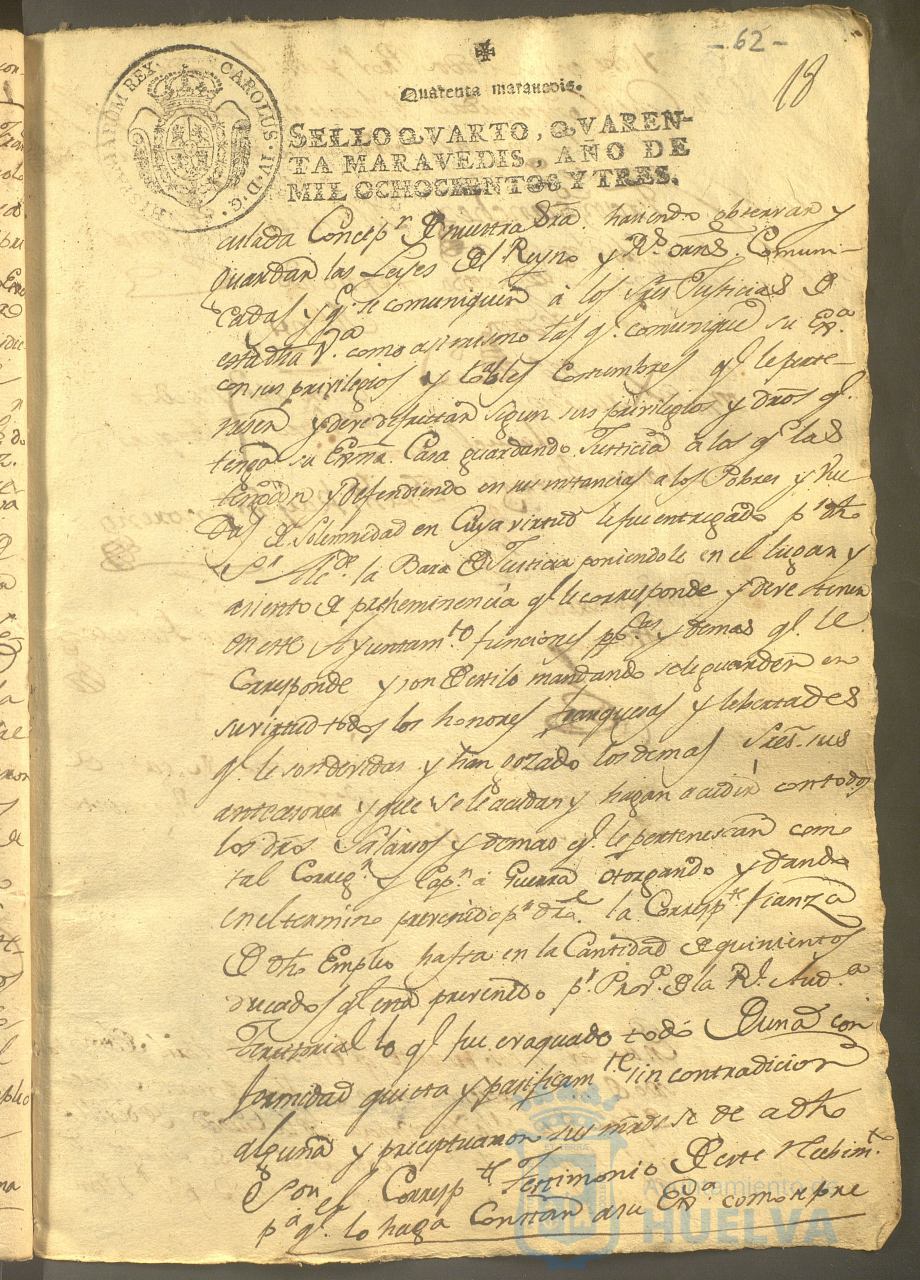 - 62 -
18
Quarenta maravedis.
SELLO QVARTO, QVAREN-
TA MARAVEDIS, AÑO DE
MIL OCHOCIENTOS Y TRES.
CAROLUS · IV · D · G · HISPANIARUM REX ·
culada Concepn. De nuestra Sra. haciendo observar y
Guardar las Leyes del Reyno y Rs. ornes. Comuni-
cadas y qe. se comuniquen á los Sres Justicias de
esta dha Va. como asimismo las qe. comunique su Exa.
con sus privilegios y lobles Costumbres qe. le perte-
necen y deve disfrutar segun sus privilegios y dros qe.
tenga su Exma. Casa guardando Justicia á los qe. las
tengan y defendiendo en sus instancias a los Pobres y Viu
das de Solemnidad en Cuya virtud le fue entregado pr. dho
Sr. Alce. la Bara de Justicia poniendole en el lugar y
asiento de preheminencia qe. le corresponde y deve tener
en este Ayuntamto. funciones ppcas y demas qe. le
Corresponde y son de estilo mandando se le guarden en
su virtud todos los honores franquesas y libertades
qe. le son devidas y han gozado los demas Sres. sus
antecesores y que se le acudan y hagan acudir con todos
los dros Salarios y demas qe. le pertenescan como
tal Corregr. y Capn. á Guerra otorgando y dando
en el termino prevenido pr. dro. la Correspte. fianza
de dho Empleo hasta en la Cantidad de quinientos
ducados qe. está prevenido pr. Prova. de la Rl. Auda.
Territorial lo qe. fue evaquado todo de una con
formidad quieta y pasificamte. sin contradicion
alguna y preceptuaron sus mrds se de a dho
Sor. el Correspte. Testimonio de este recibimto.
pa. qe. lo haga Constar a su Exa. como repre
Ayuntamiento de
HUELVA